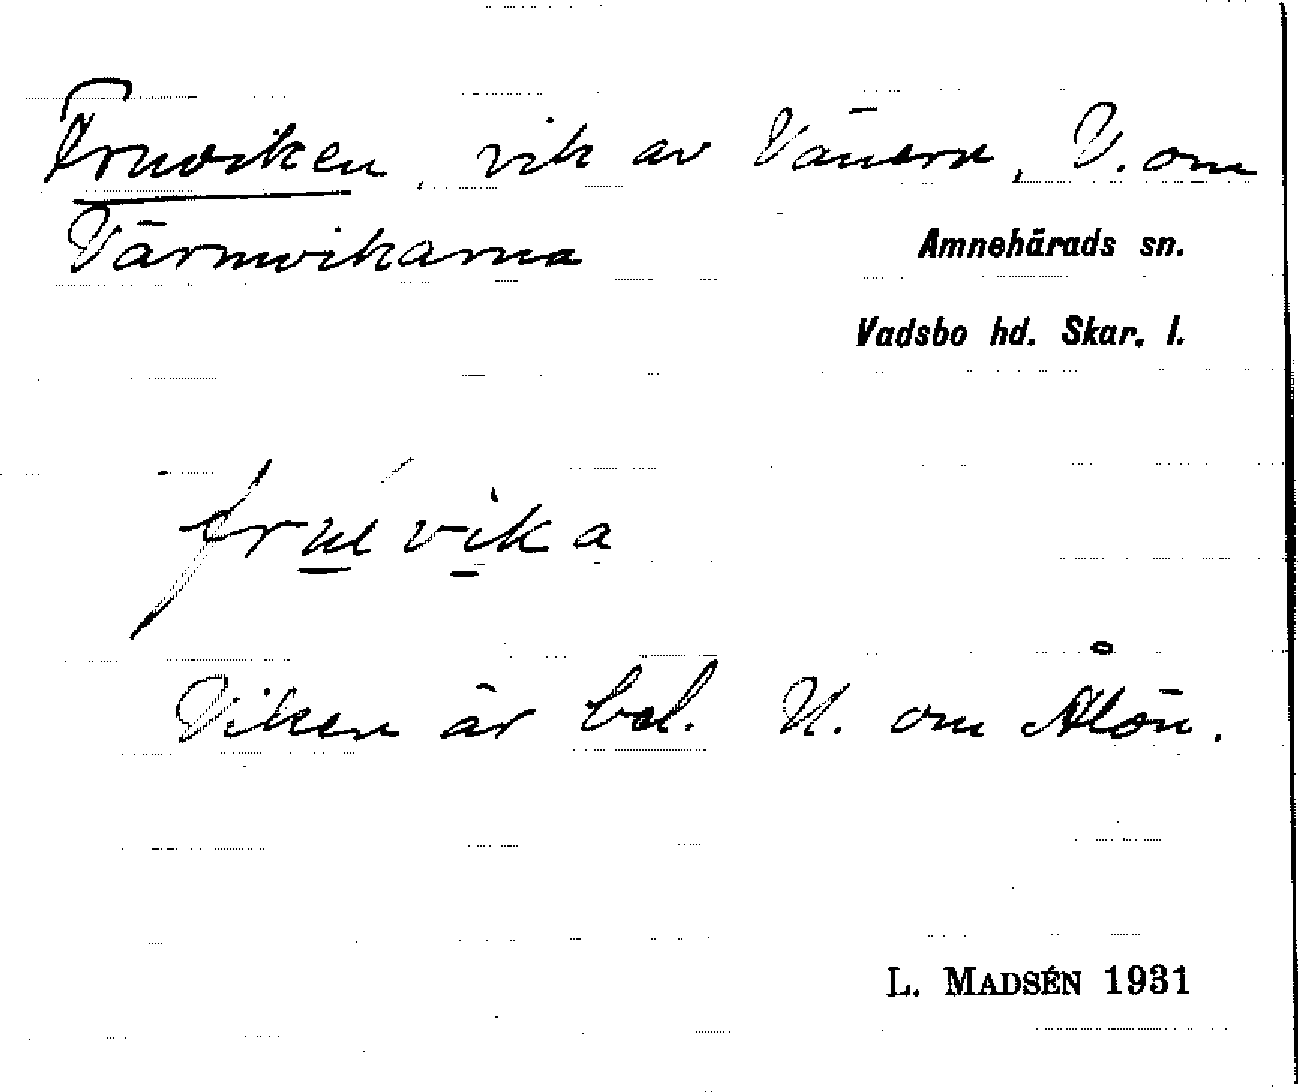 Fruviken, vik av Vänern, V. om
Värmvikarna
Amnehärads sn.
Vadsbo hd. Skar. l.
fruvika
Viken är bel. N. om Ålön.
L. MADSÉN 1931